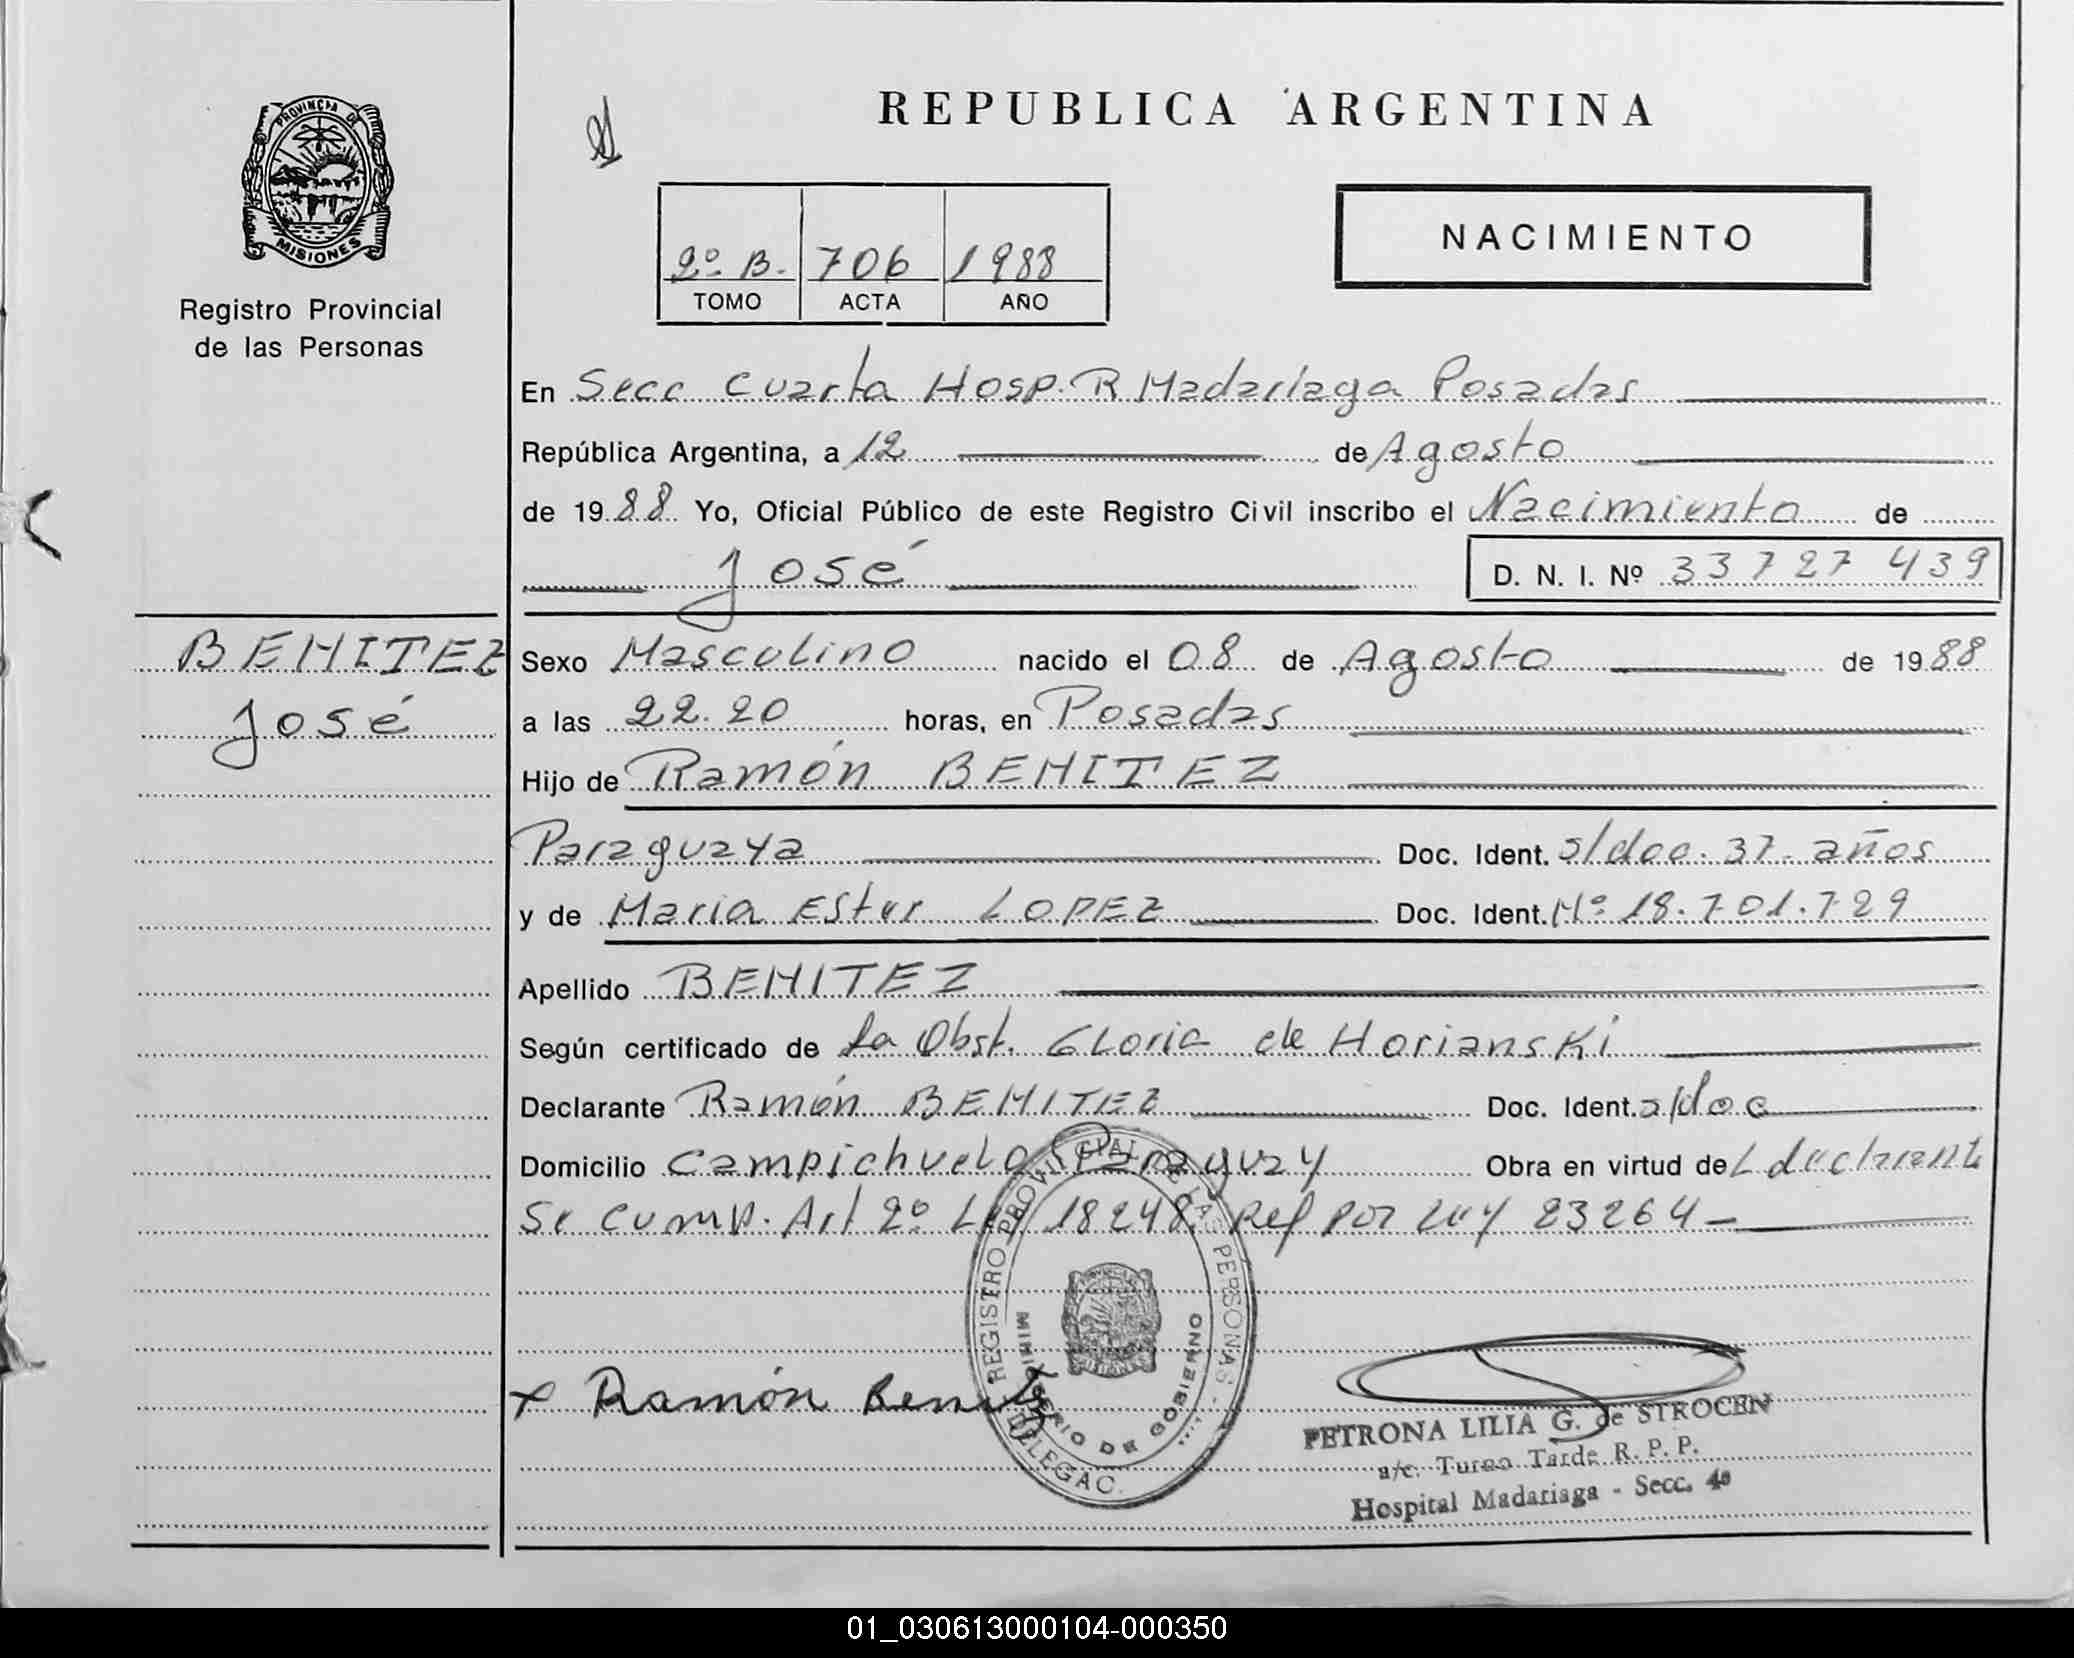 REPUBLICA ARGENTINA
PROVINCIA DE
MISIONES
Registro Provincial
de las Personas
NACIMIENTO
2º B. 706 1988
TOMO ACTA AÑO
En Secc Cuarta Hosp. R Madariaga Posadas
República Argentina, a 12 de Agosto
de 1988 Yo, Oficial Público de este Registro Civil inscribo el Nacimiento de
José D. N. I. Nº 33727439
BENITEZ
José
Sexo Masculino nacido el 08 de Agosto de 1988
a las 22.20 horas, en Posadas
Hijo de Ramón BENITEZ
Paraguaya Doc. Ident. s/doc. 37 años
y de Maria Ester LOPEZ Doc. Ident. Nº 18.701.729
Apellido BENITEZ
Según certificado de La Obst. Gloria de Horianski
Declarante Ramón BENITEZ Doc. Ident. s/doc
Domicilio Campichuelo Paraguay Obra en virtud del declarante
Se cump. Art 2º Ley 18248 Ref por Ley 23264
REGISTRO PROVINCIAL DE LAS PERSONAS
MINISTERIO DE GOBIERNO
DELEGAC.
x Ramón Benitez
PETRONA LILIA G. de STROCEN
a/c. Turno Tarde R. P. P.
Hospital Madariaga - Secc. 4ª
01_030613000104-000350